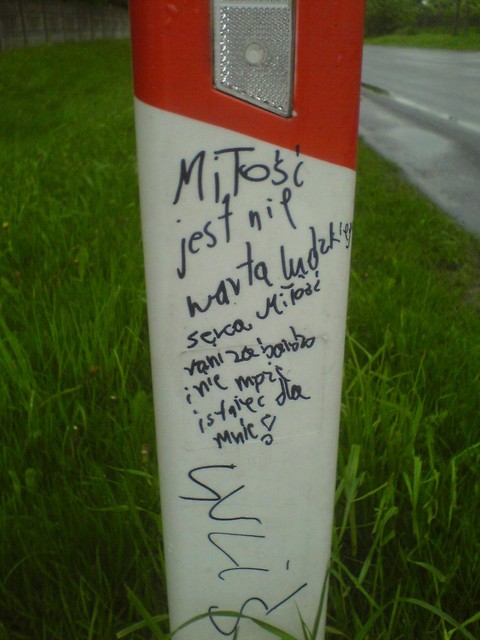 Miłość
jest nie
warta ludzkiej
serca. Miłość
rani za bardzo
i nie może
istnieć dla
mnie!